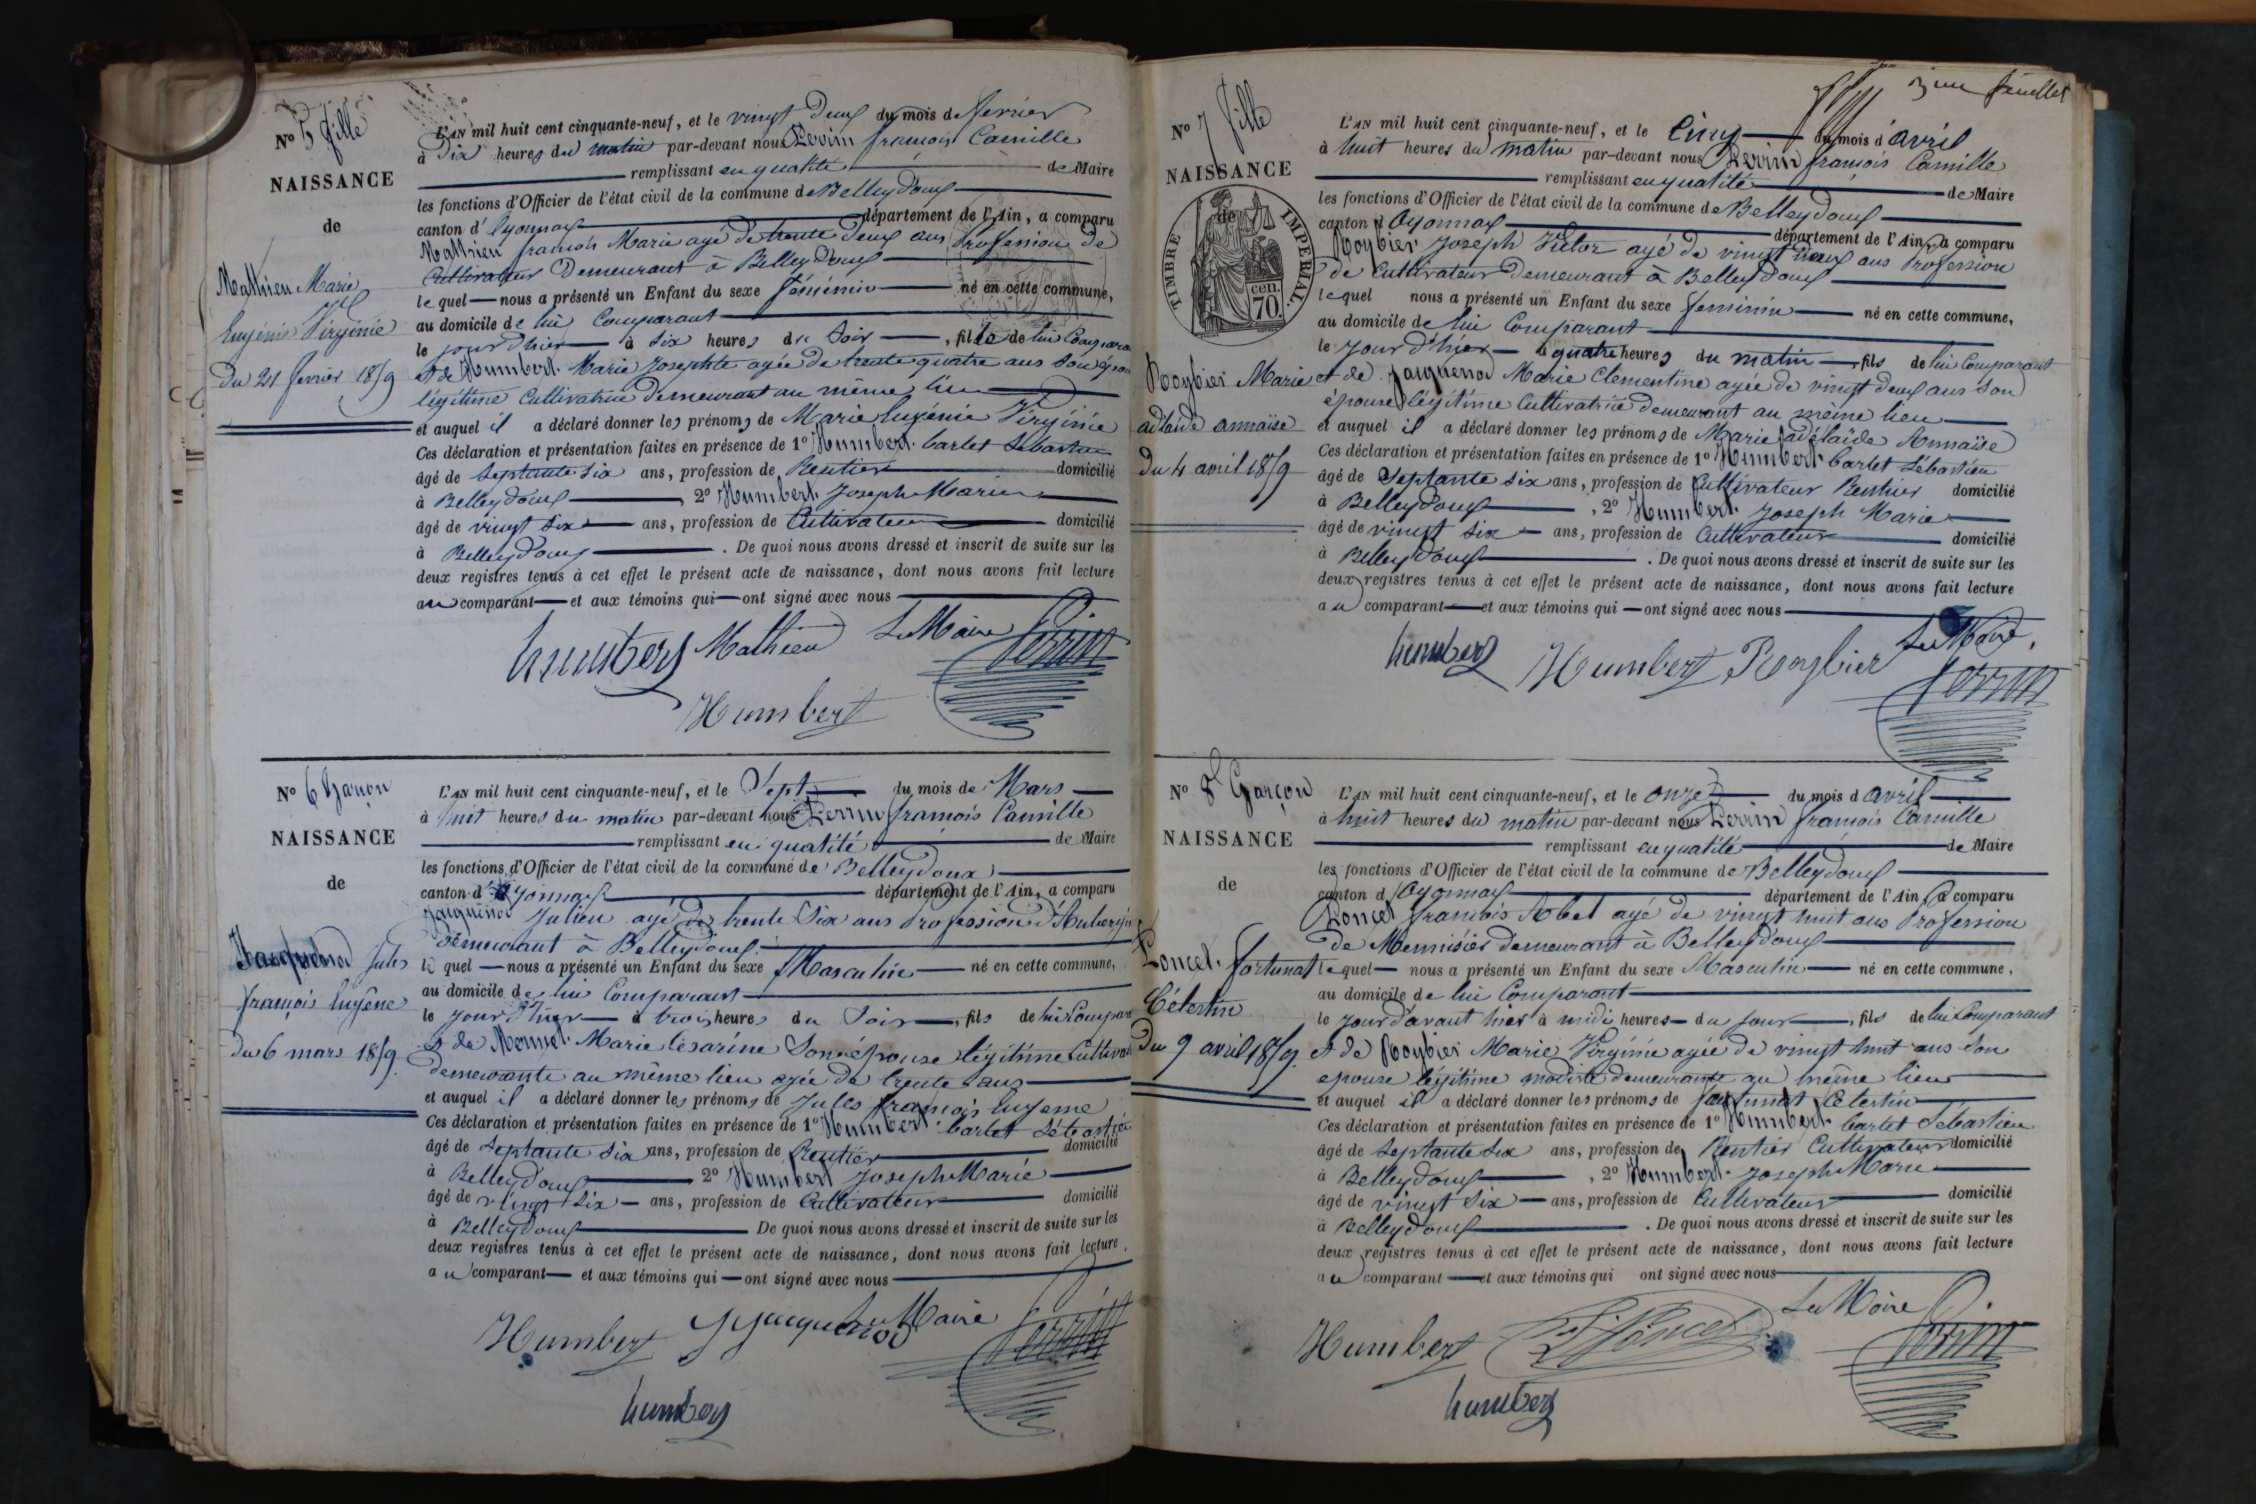 No 5 fille
NAISSANCE
de
Mathieu Marie
Eugénie Virginie
du 21 fevrier 1859
L'AN mil huit cent cinquante-neuf, et le vingt deux du mois de fevrier
à Dix heures du matin par-devant nous Perrin françois Camille
remplissant en qualité de Maire
les fonctions d'Officier de l'état civil de la commune de Belleydoux
canton d'Oyonnax département de l'Ain, a comparu
Mathieu françois Marie agé de trente deux ans Profession de
Cultivateur Demeurant à Belleydoux
lequel nous a présenté un Enfant du sexe féminin né en cette commune,
au domicile de lui Comparant
le jour d'hier à six heures du Soir, fille de lui Compara
et de Humbert Marie Josephte agée de trente quatre ans Son épou
légitime Cultivatrice Demeurant au même lieu
et auquel il a déclaré donner les prénoms de Marie Eugénie Virginie
Ces déclaration et présentation faites en présence de 1° Humbert barlet Sébastien
âgé de septante six ans, profession de Rentier domicilié
à Belleydoux, 2° Humbert Joseph Marie
âgé de vingt six ans, profession de Cultivateur domicilié
à Belleydoux. De quoi nous avons dressé et inscrit de suite sur les
deux registres tenus à cet effet le présent acte de naissance, dont nous avons fait lecture
au comparant et aux témoins qui ont signé avec nous
humbert Mathieu Le Maire Perrin
Humbert
No 6 Garçon
NAISSANCE
de
Jacquenod Jules
françois Eugène
du 6 mars 1859.
L'AN mil huit cent cinquante-neuf, et le Sept du mois de Mars
à huit heures du matin par-devant nous Perrin françois Camille
remplissant en qualité de Maire
les fonctions d'Officier de l'état civil de la commune de Belleydoux
canton d'Oyonnax département de l'Ain, a comparu
Jacquenod Julien agé de trente Six ans Profession d'Aubergis
demeurant à Belleydoux
le quel nous a présenté un Enfant du sexe Masculin né en cette commune,
au domicile de lui Comparant
le jour d'hier à trois heures du Soir, fils de lui Compara
et de Monnet Marie Césarine Son épouse légitime Cultivat
demeurante au même lieu agée de trente ans
et auquel il a déclaré donner les prénoms de Jules françois Eugene
Ces déclaration et présentation faites en présence de 1° Humbert barlet Sébastien
âgé de septante six ans, profession de Rentier domicilié
à Belleydoux 2° Humbert Joseph Marie
âgé de vingt six ans, profession de Cultivateur domicilié
à Belleydoux De quoi nous avons dressé et inscrit de suite sur les
deux registres tenus à cet effet le présent acte de naissance, dont nous avons fait lecture,
au comparant et aux témoins qui ont signé avec nous
Humbert Jacquenod Le Maire Perrin
humbert
3ieme feuillet
No 7 fille
NAISSANCE
de
TIMBRE IMPERIAL.
cen.
70.
Roybier Marie
adlaide annaïse
Du 4 avril 1859
L'AN mil huit cent cinquante-neuf, et le Cinq du mois d'avril
à huit heures du matin par-devant nous Perrin françois Camille
remplissant en qualité de Maire
les fonctions d'Officier de l'état civil de la commune de Belleydoux
canton d Oyonnax département de l'Ain, a comparu
Roybier Joseph Victor agé de vingt neuf ans Profession
de Cultivateur Demeurant à Belleydoux
lequel nous a présenté un Enfant du sexe feminin né en cette commune,
au domicile de lui Comparant
le jour d'hier à quatre heures du matin, fils de lui Comparant
et de Jacquenod Marie Clementine agée de vingt deux ans Son
épouse légitime Cultivatrice demeurant au même lieu
et auquel il a déclaré donner les prénoms de Marie adélaïde Annaïse
Ces déclaration et présentation faites en présence de 1° Humbert barlet Sébastien
âgé de septante six ans, profession de Cultivateur Rentier domicilié
à Belleydoux, 2° Humbert Joseph Marie
âgé de vingt six ans, profession de Cultivateur domicilié
à Belleydoux. De quoi nous avons dressé et inscrit de suite sur les
deux registres tenus à cet effet le présent acte de naissance, dont nous avons fait lecture
au comparant et aux témoins qui ont signé avec nous
humbert Humbert Roybier Le Maire Perrin
No 8 Garçon
NAISSANCE
de
Poncet fortunat
Célestin
Du 9 avril 1859.
L'AN mil huit cent cinquante-neuf, et le onze du mois d avril
à huit heures du matin par-devant nous Perrin françois Camille
remplissant en qualité de Maire
les fonctions d'Officier de l'état civil de la commune de Belleydoux
canton d Oyonnax département de l'Ain, a comparu
Poncet francois Abel agé de vingt huit ans Profession
de Menuisier demeurant à Belleydoux
lequel nous a présenté un Enfant du sexe Masculin né en cette commune,
au domicile de lui Comparant
le jour d'avant hier à midi heures du jour, fils de lui Comparant
et de Roybier Marie Virginie agée de vingt huit ans Son
epouse légitime modiste demeurante au même lieu
et auquel il a déclaré donner les prénoms de fortunat Célestin
Ces déclaration et présentation faites en présence de 1° Humbert barlet Sébastien
âgé de Septante Six ans, profession de Rentier Cultivateur domicilié
à Belleydoux, 2° Humbert Joseph Marie
âgé de vingt six ans, profession de Cultivateur domicilié
à Belleydoux. De quoi nous avons dressé et inscrit de suite sur les
deux registres tenus à cet effet le présent acte de naissance, dont nous avons fait lecture
au comparant et aux témoins qui ont signé avec nous
Humbert Poncet Le Maire Perrin
humbert